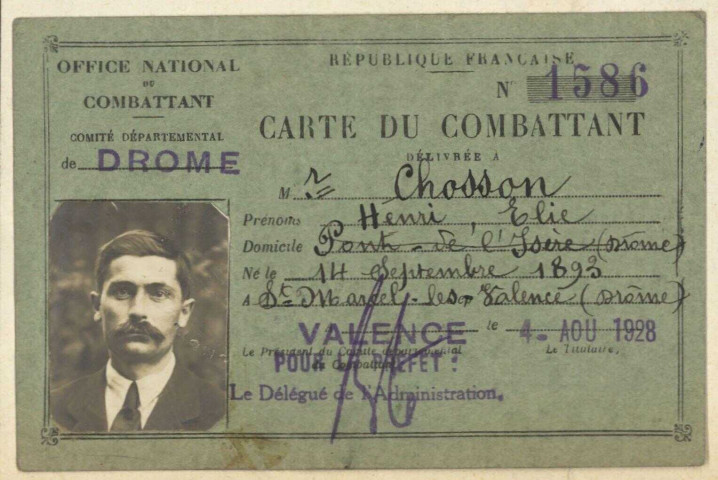 OFFICE NATIONAL
DU
COMBATTANT
COMITÉ DÉPARTEMENTAL
de DROME
RÉPUBLIQUE FRANÇAISE
N° 1586
CARTE DU COMBATTANT
DÉLIVRÉE A
M r Chosson
Prénoms Henri, Elie
Domicile Pont-de-l'Isère (Drôme)
Né le 14 Septembre 1893
A St Marcel-les-Valence (Drôme)
VALENCE le 4 - AOU 1928
Le Président du Comité départemental
du Combattant
Le Titulaire,
POUR LE PRÉFET :
Le Délégué de l'Administration,